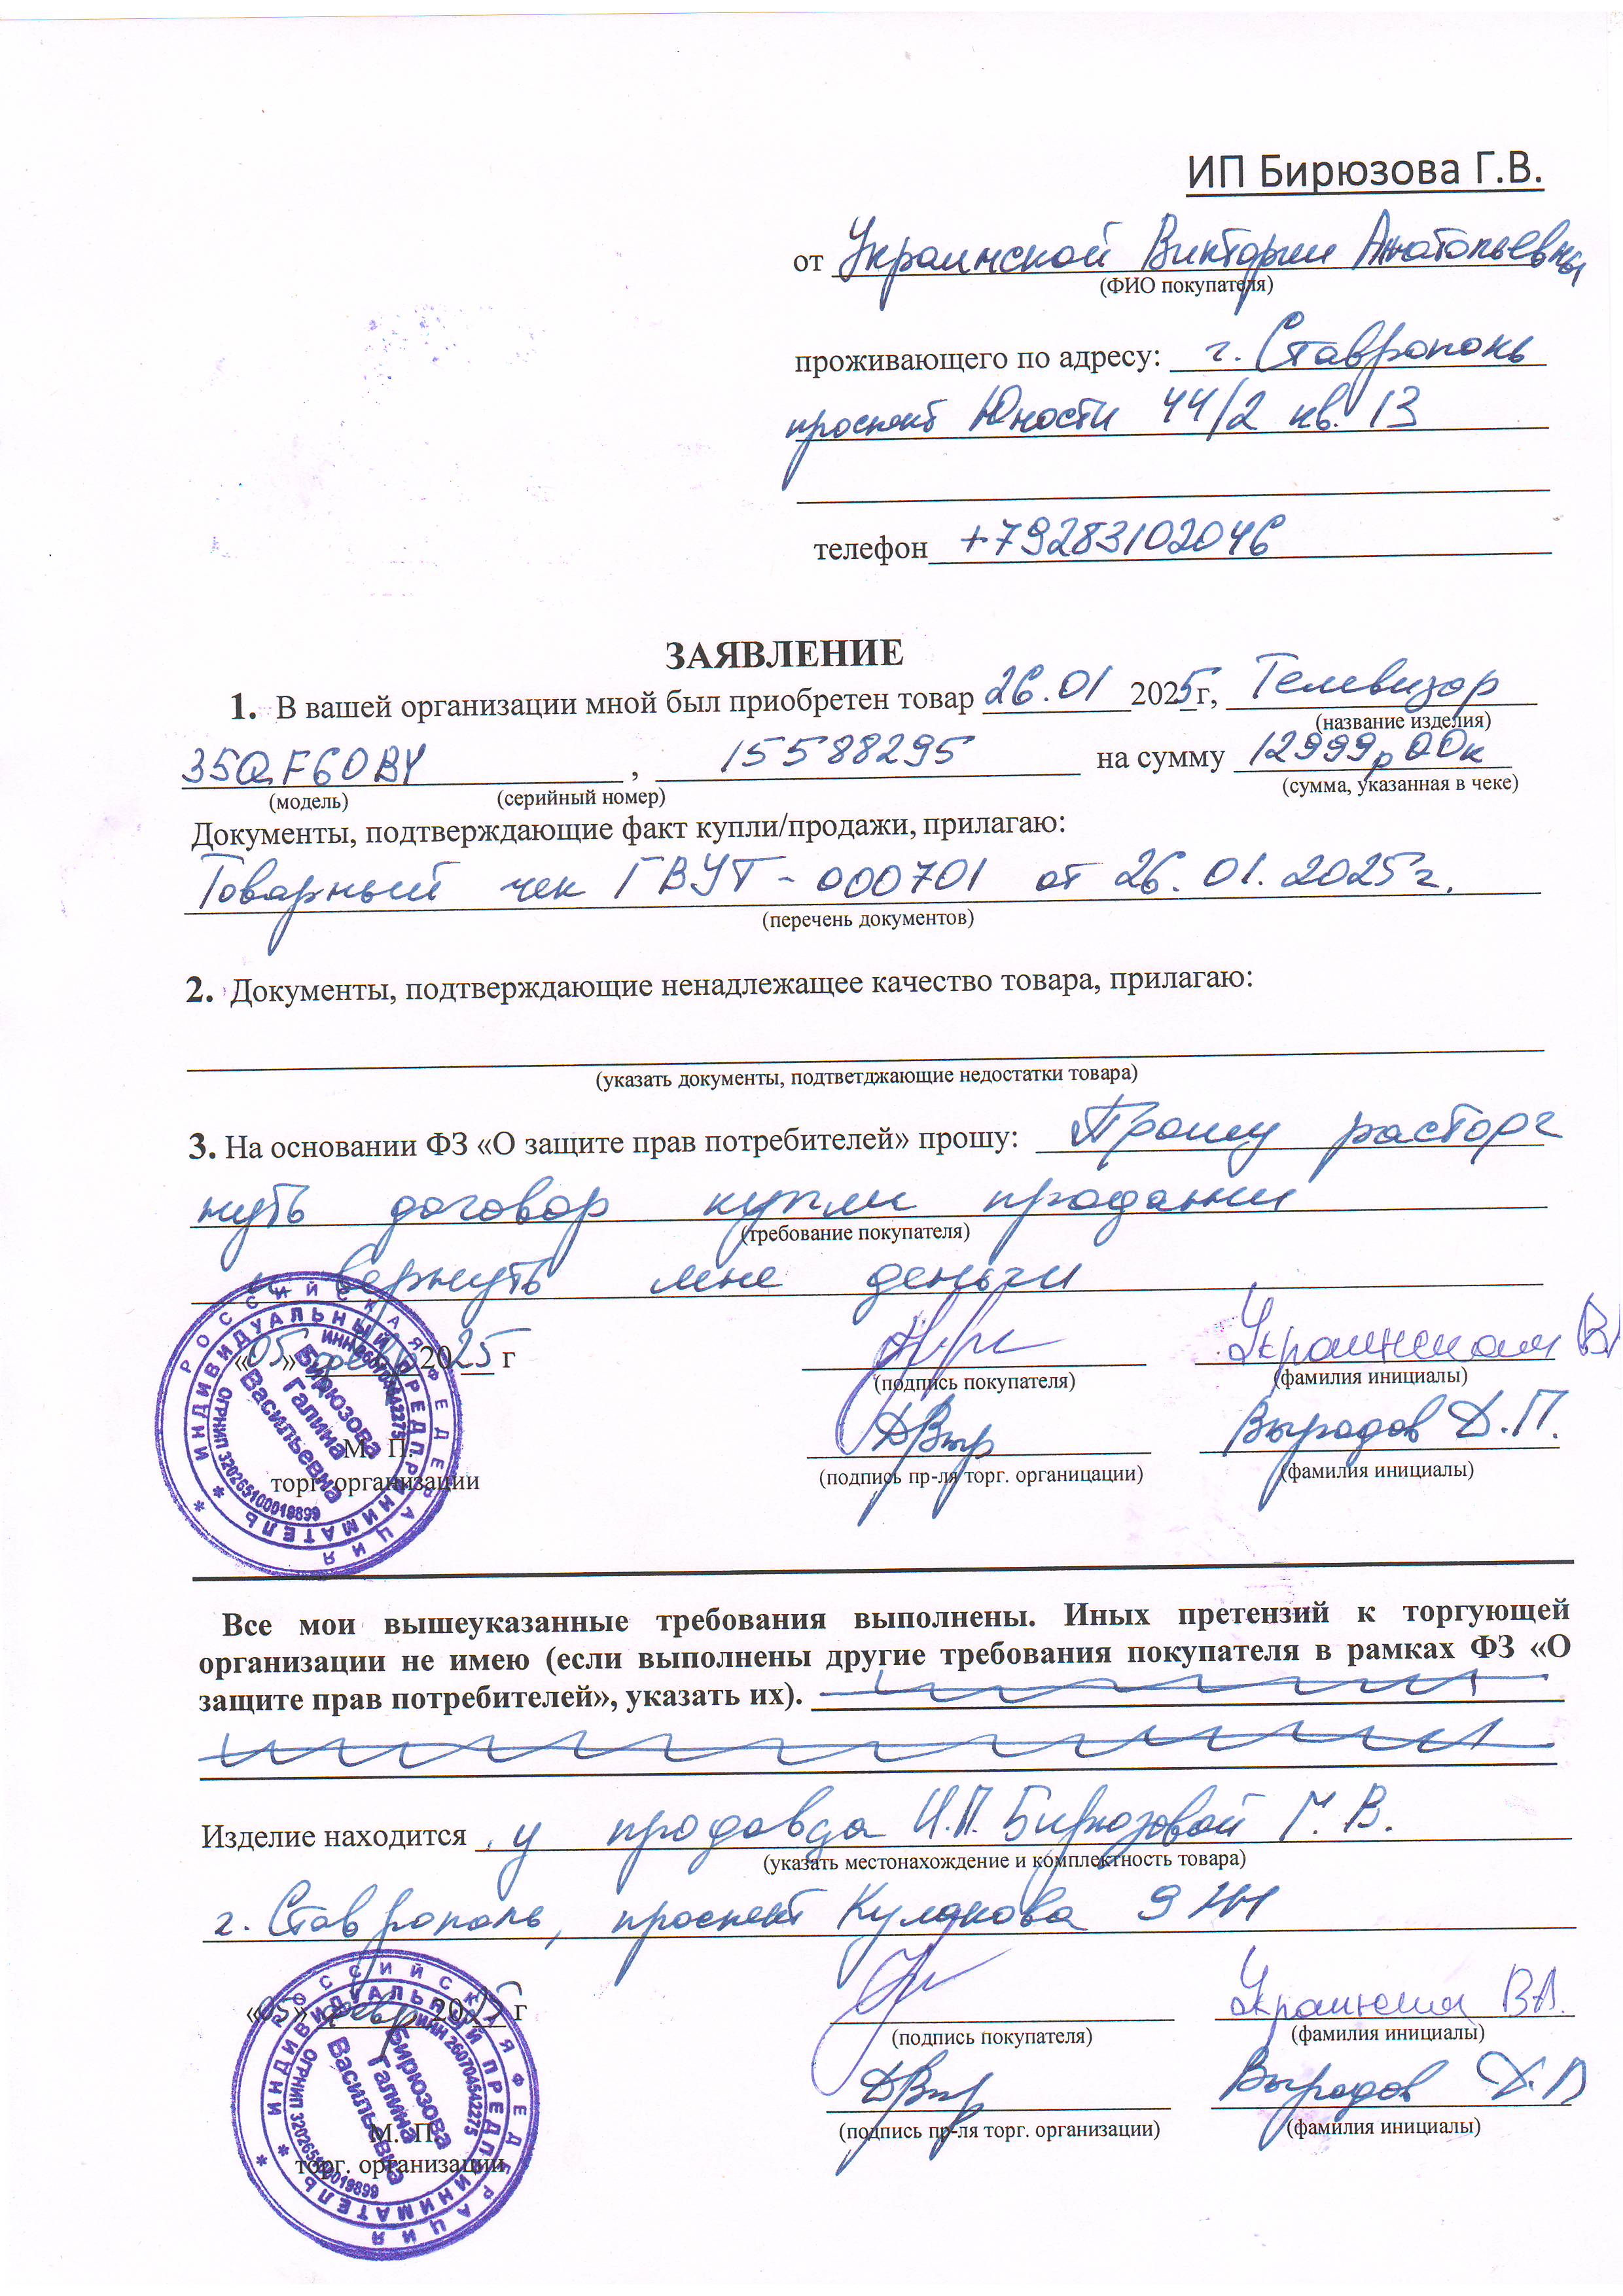 ИП Бирюзова Г.В.
от Украинской Виктории Анатольевны
(ФИО покупателя)
проживающего по адресу: г. Ставрополь
проспект Юности 44/2 кв. 13
телефон +79283102046
ЗАЯВЛЕНИЕ
1. В вашей организации мной был приобретен товар 26.01 2025 г, Телевизор
(название изделия)
35QF60BY , 15588295 на сумму 12999р 00к
(модель) (серийный номер) (сумма, указанная в чеке)
Документы, подтверждающие факт купли/продажи, прилагаю:
Товарный чек ГВУТ-000701 от 26.01.2025г.
(перечень документов)
2. Документы, подтверждающие ненадлежащее качество товара, прилагаю:
(указать документы, подтветджающие недостатки товара)
3. На основании ФЗ «О защите прав потребителей» прошу: Прошу расторг
нуть договор купли продажи
(требование покупателя)
и вернуть мне деньги
«05» февр 2025 г Украинская В
(подпись покупателя) (фамилия инициалы)
Выродов Д.П.
М. П.
торг. организации (подпись пр-ля торг. органицации) (фамилия инициалы)
РОССИЙСКАЯ ФЕДЕРАЦИЯ
ИНДИВИДУАЛЬНЫЙ ПРЕДПРИНИМАТЕЛЬ
ИНН 260704542275
Бирюзова
Галина
Васильевна
ОГРНИП 320265100019899
Все мои вышеуказанные требования выполнены. Иных претензий к торгующей
организации не имею (если выполнены другие требования покупателя в рамках ФЗ «О
защите прав потребителей», указать их).
Изделие находится у продавца И.П. Бирюзовой Г. В.
(указать местонахождение и комплектность товара)
г. Ставрополь, проспект Кулакова 9
«05» февр 2025 г Украинская ВА.
(подпись покупателя) (фамилия инициалы)
Выродов Д.П
М. П.
торг. организации (подпись пр-ля торг. организации) (фамилия инициалы)
РОССИЙСКАЯ ФЕДЕРАЦИЯ
ИНДИВИДУАЛЬНЫЙ ПРЕДПРИНИМАТЕЛЬ
ИНН 260704542275
Бирюзова
Галина
Васильевна
ОГРНИП 320265100019899